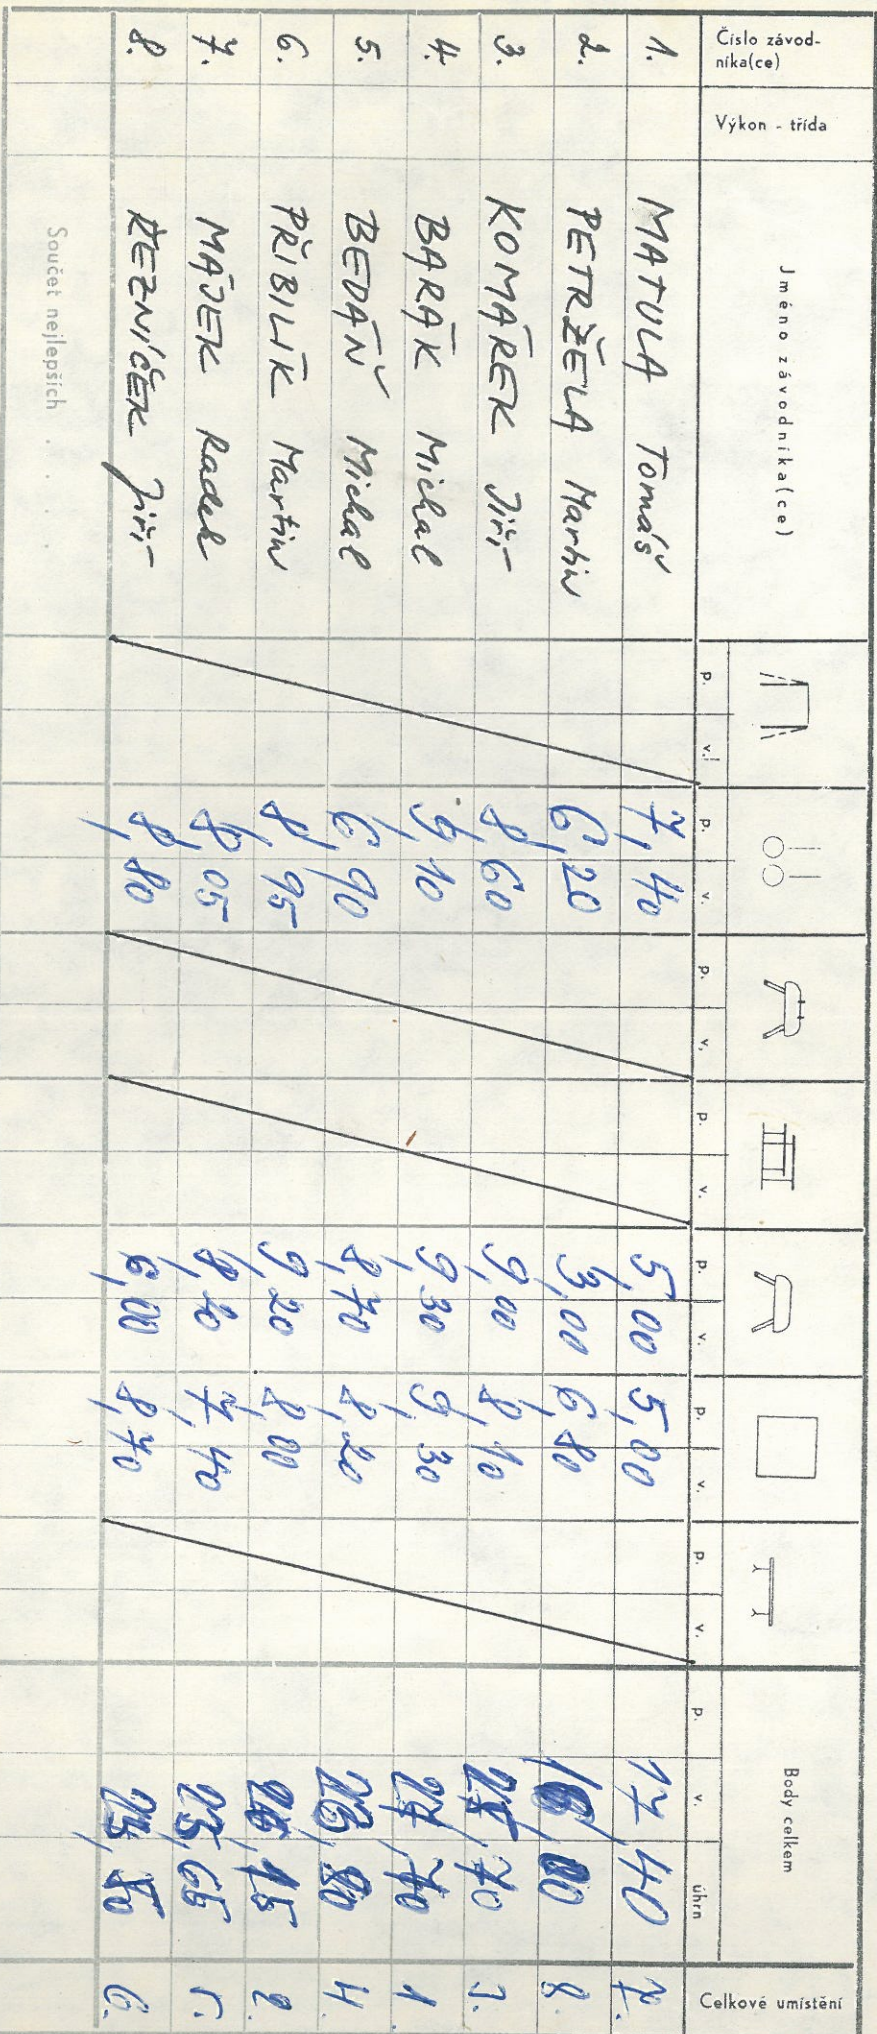 Číslo závod-
níka(ce)
Výkon - třída
Jméno závodníka(ce)
Body celkem
Celkové umístění
p. v. p. v. p. v. p. v. p. v. p. v. p. v. p. v. úhrn
1. MATULA Tomáš 7,40 5,00 5,00 17,40 7.
2. PETRŽELA Martin 6,20 3,00 6,80 16,00 8.
3. KOMÁREK Jiří 8,60 9,00 8,10 3.
4. BARÁK Michal 9,10 9,30 9,30 27,70 1.
5. BEDÁŇ Michal 6,90 8,70 8,20 23,80 4.
6. PŘIBILÍK Martin 8,95 9,20 8,00 26,15 2.
7. MÁJEK Radek 8,05 8,20 7,40 23,65 5.
8. ŘEZNÍČEK Jiří 8,80 6,00 8,70 23,50 6.
Součet nejlepších . . . .